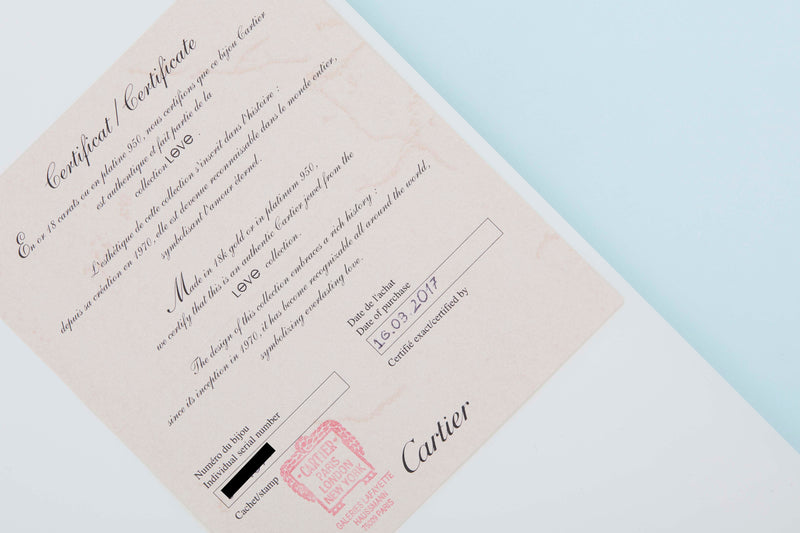 Certificat / Certificate
En or 18 carats ou en platine 950, nous certifions que ce bijou Cartier
est authentique et fait partie de la
collection LOVE :
L'esthétique de cette collection s'inscrit dans l'histoire :
depuis sa création en 1970, elle est devenue reconnaissable dans le monde entier,
symbolisant l'amour éternel.
Made in 18k gold or in platinum 950,
we certify that this is an authentic Cartier jewel from the
LOVE collection.
The design of this collection embraces a rich history :
since its inception in 1970, it has become recognisable all around the world,
symbolizing everlasting love.
Date de l'achat
Date of purchase
16.03.2017
Certifié exact/certified by
Numéro du bijou
Individual serial number
Cachet/stamp
CARTIER
PARIS
LONDON
NEW YORK
GALERIES LAFAYETTE
HAUSSMANN
75009 PARIS
Cartier